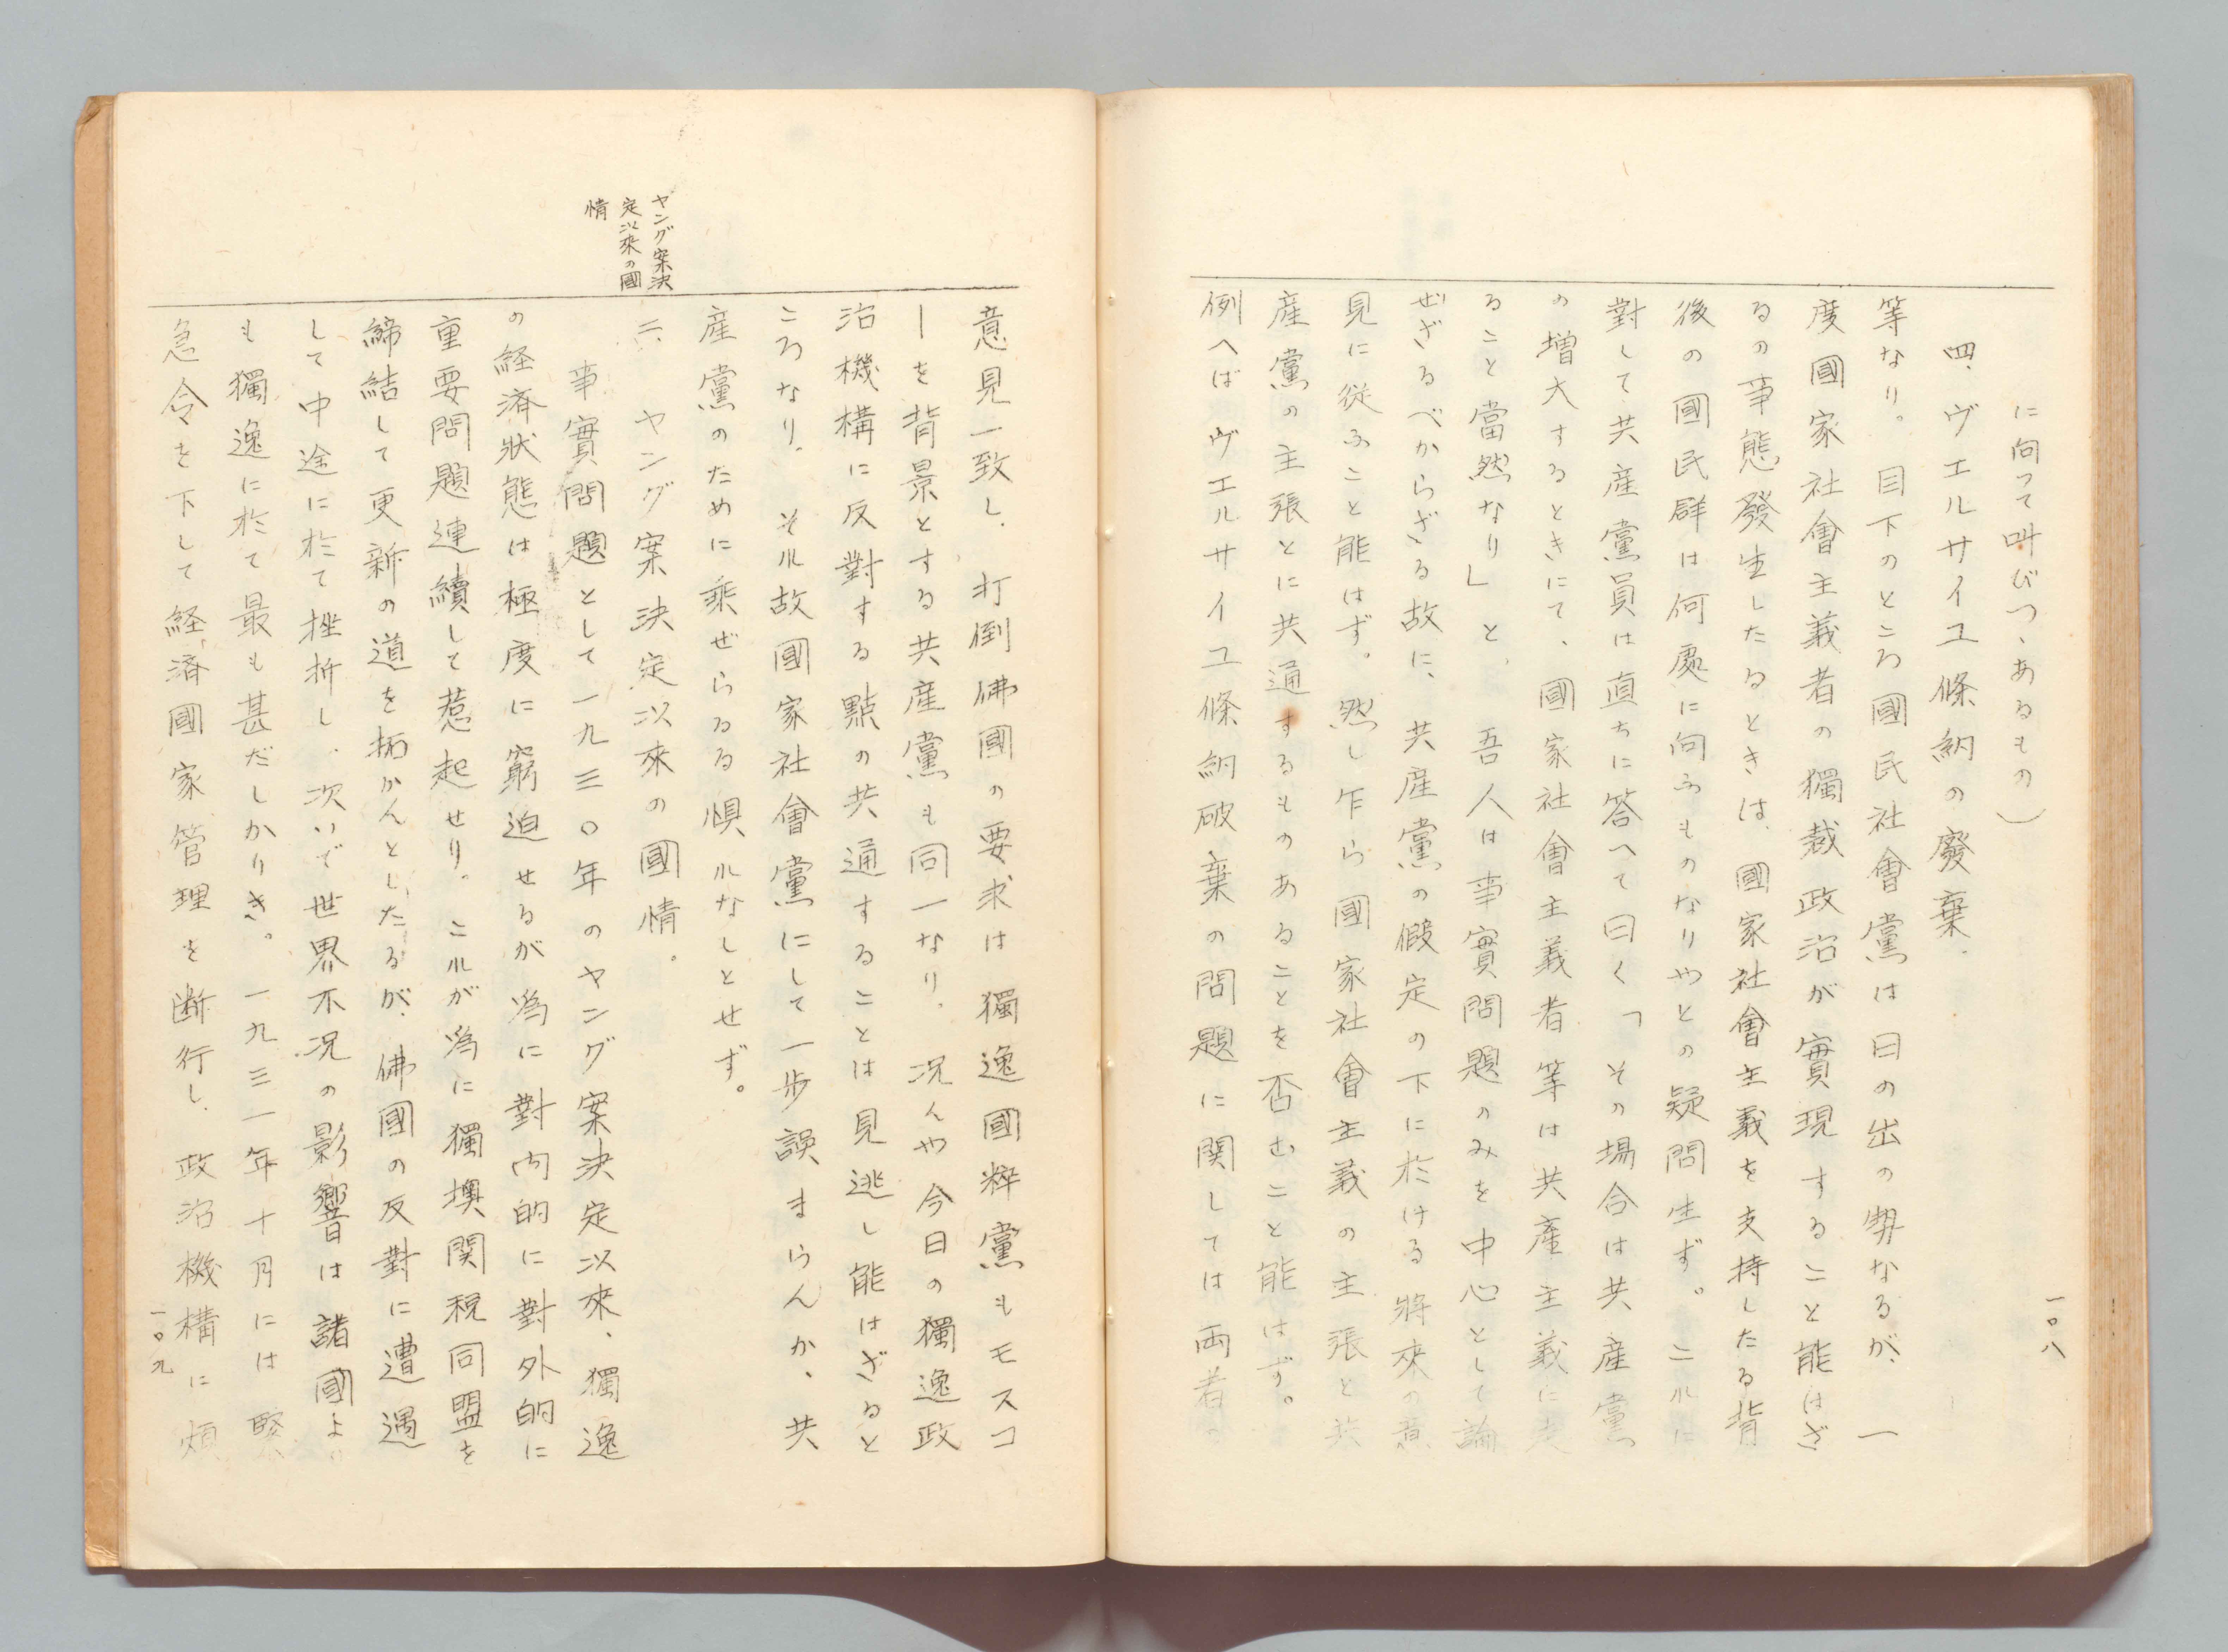 一〇八
に向つて叫びつゝあるもの)
四、ヴエルサイユ條約の廢棄.
等なり。目下のところ國民社會黨は日の出の勢なるが、一
度國家社會主義者の獨裁政治が實現すること能はざ
るの事態發生したるときは、國家社會主義を支持したる背
後の國民群は何處に向ふものなりやとの疑問生ず。これに
對して共産黨員は直ちに答へて曰く「その場合は共産黨
の増大するときにて、國家社會主義者等は共産主義に走
ること當然なり」と、吾人は事實問題のみを中心として論
ぜざるべからざる故に、共産黨の假定の下に於ける將來の意
見に從ふこと能はず。然し乍ら國家社會主義の主張と共
産黨の主張とに共通するものあることを否むこと能はず。
例へばヴエルサイユ條約破棄の問題に関しては両者の
意見一致し、打倒佛國の要求は獨逸國粹黨もモスコ
ーを背景とする共産黨も同一なり。況んや今日の獨逸政
治機構に反對する點の共通することは見逃し能はざると
ころなり。それ故國家社會黨にして一歩誤まらんか、共
産黨のために乘ぜらるる惧れなしとせず。
ヤング案決
定以來の國
情
二、ヤング案決定以來の國情。
事實問題として一九三〇年のヤング案決定以來、獨逸
の経済狀態は極度に窮迫せるが為に對内的に對外的に
重要問題連續して惹起せり。これが為に獨墺関税同盟を
締結して更新の道を拓かんとしたるが、佛國の反對に遭遇
して中途に於て挫折し、次いで世界不況の影響は諸國より
も獨逸に於て最も甚だしかりき。一九三一年十月には緊
急令を下して経済國家管理を断行し、政治機構に煩
一〇九